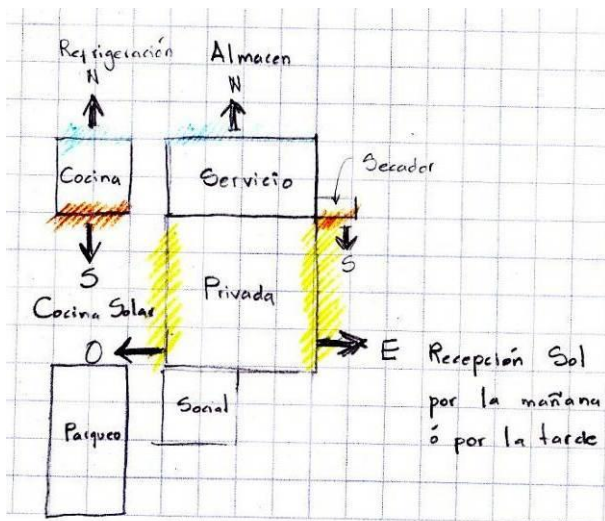 Refrigeración
N
Almacen
N
Cocina
Servicio
Secador
S
Cocina Solar
Privada
S
O
E
Recepción Sol
por la mañana
ó por la tarde
Parqueo
Social